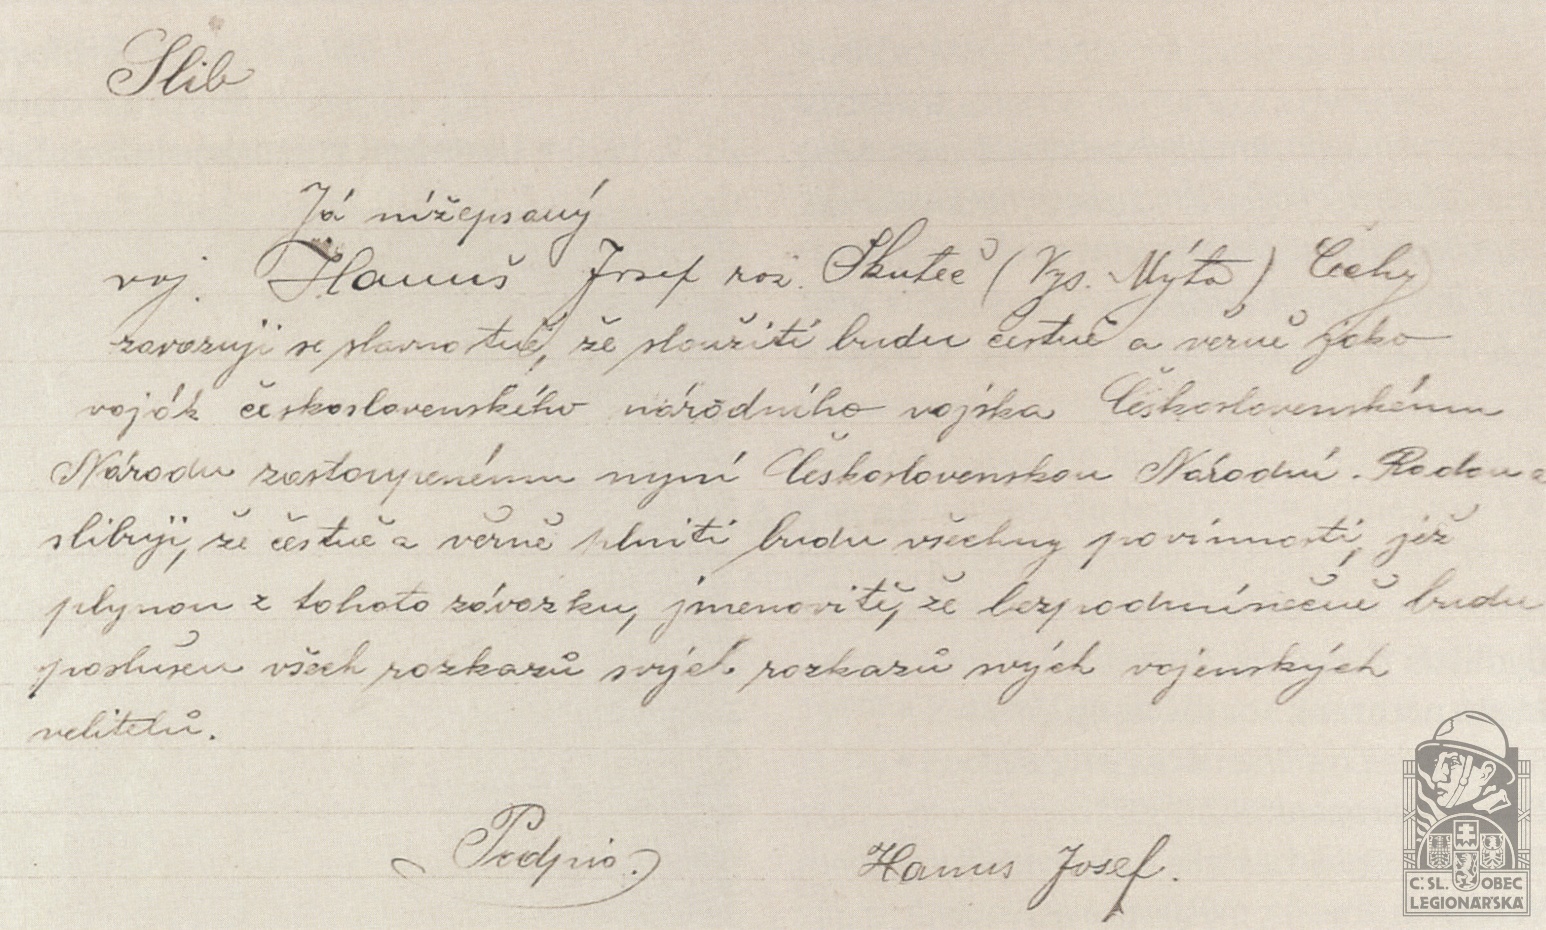 Slib
Já nížepsaný
voj. Hanuš Josef roz. Skuteč (Vys. Mýto) Čechy
zavazuji se slavnotně, že sloužiti budu čestně a věrně jako
voják československého národního vojska Československému
Národu zastoupenému nyní Československou Národní. Radou a
slibuji, že čestně a věrně plniti budu všechny povinnosti, jež
plynou z tohoto závazku, jmenovitě, že bezpodmínečně budu
poslušen všech rozkazů svých rozkazů svých vojenských
velitelů.
Podpis. Hanus Josef.
Č.SL. OBEC
LEGIONÁŘSKÁ